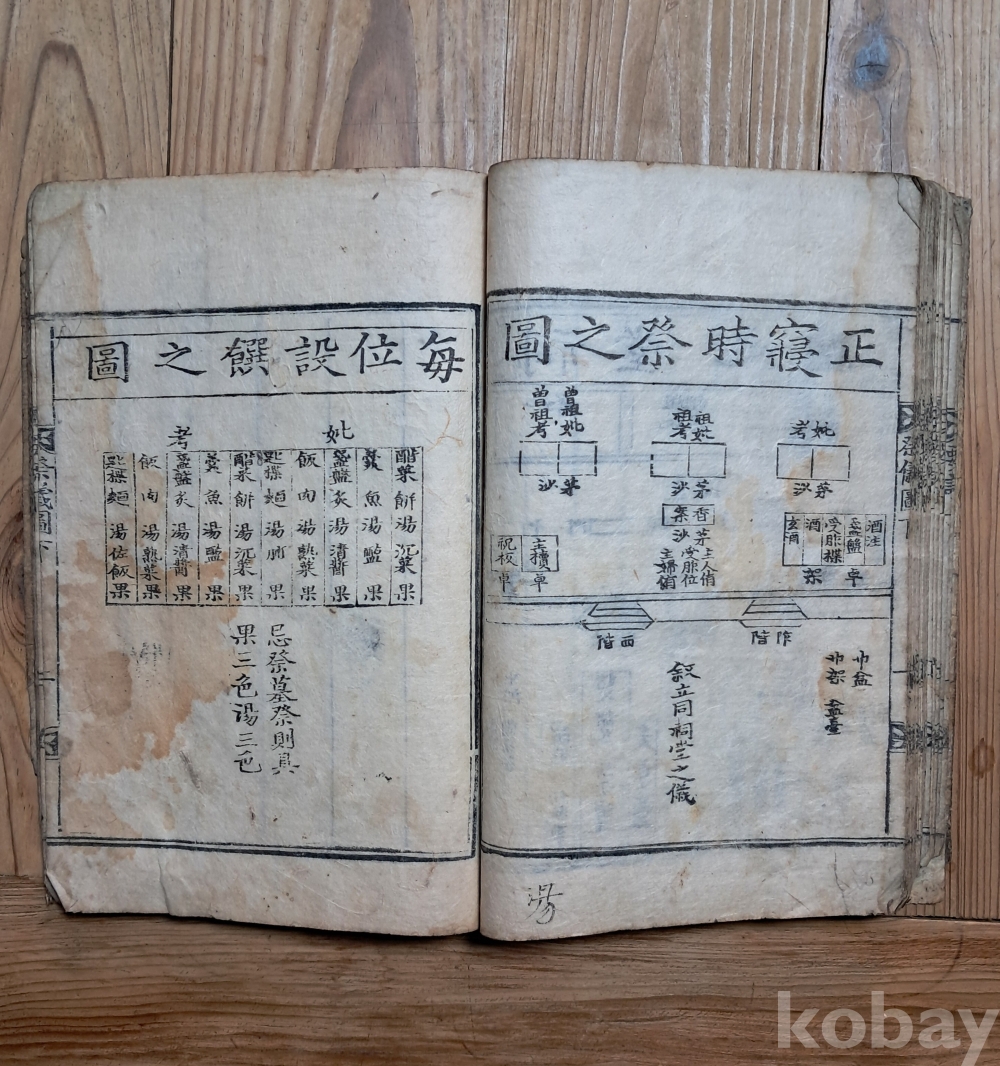 正寢時祭之圖
考妣
茅沙
祖考 祖妣
茅沙
曾祖考 曾祖妣
茅沙
香案
茅沙
主人侑
受胙位
主婦侑
酒注
盞盤
受胙楪
酒
玄酒
卓架
主櫝卓
祝板卓
阼階
西階
巾盆
巾架
盆臺
叙立同祠堂之儀
湯
每位設饌之圖
妣
醋菜 餠 湯 沉菜 果
羹 魚 湯 醢 果
盞盤 炙 湯 清醬 果
飯 肉 湯 熟菜 果
匙楪 麵 湯 脯 果
考
醋菜 餠 湯 沉菜 果
羹 魚 湯 醢 果
盞盤 炙 湯 清醬 果
飯 肉 湯 熟菜 果
匙楪 麵 湯 佐飯 果
忌祭墓祭則具
果三色湯三色
祭儀圖 下
kobay